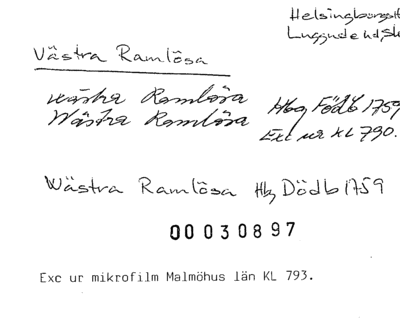 Helsingborgs
Luggude hd, Sk
Västra Ramlösa
västra Ramlösa Hbg Födb 1759
Wästra Ramlösa Exc ur KL 790.
Wästra Ramlösa Hbg Dödb 1759
00 030897
Exc ur mikrofilm Malmöhus län KL 793.